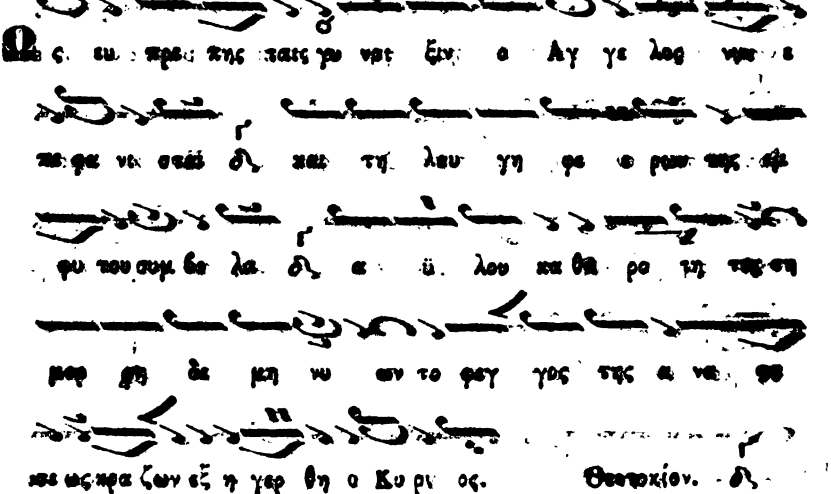 Ως ευ πρε πης ταις γυ ναι ξιν ο Αγ γε λος νυν ε
πε φα νι σται και τη λαυ γη φε ε ρων της εμ
φυ του συμ βο λα α ϋ λου κα θα ρο τη τος τη
μορ φη δε μη νυ ων το φεγ γος της α να
σε ως κρα ζων εξ η γερ θη ο Κυ ρι ος. Θεοτοκίον.